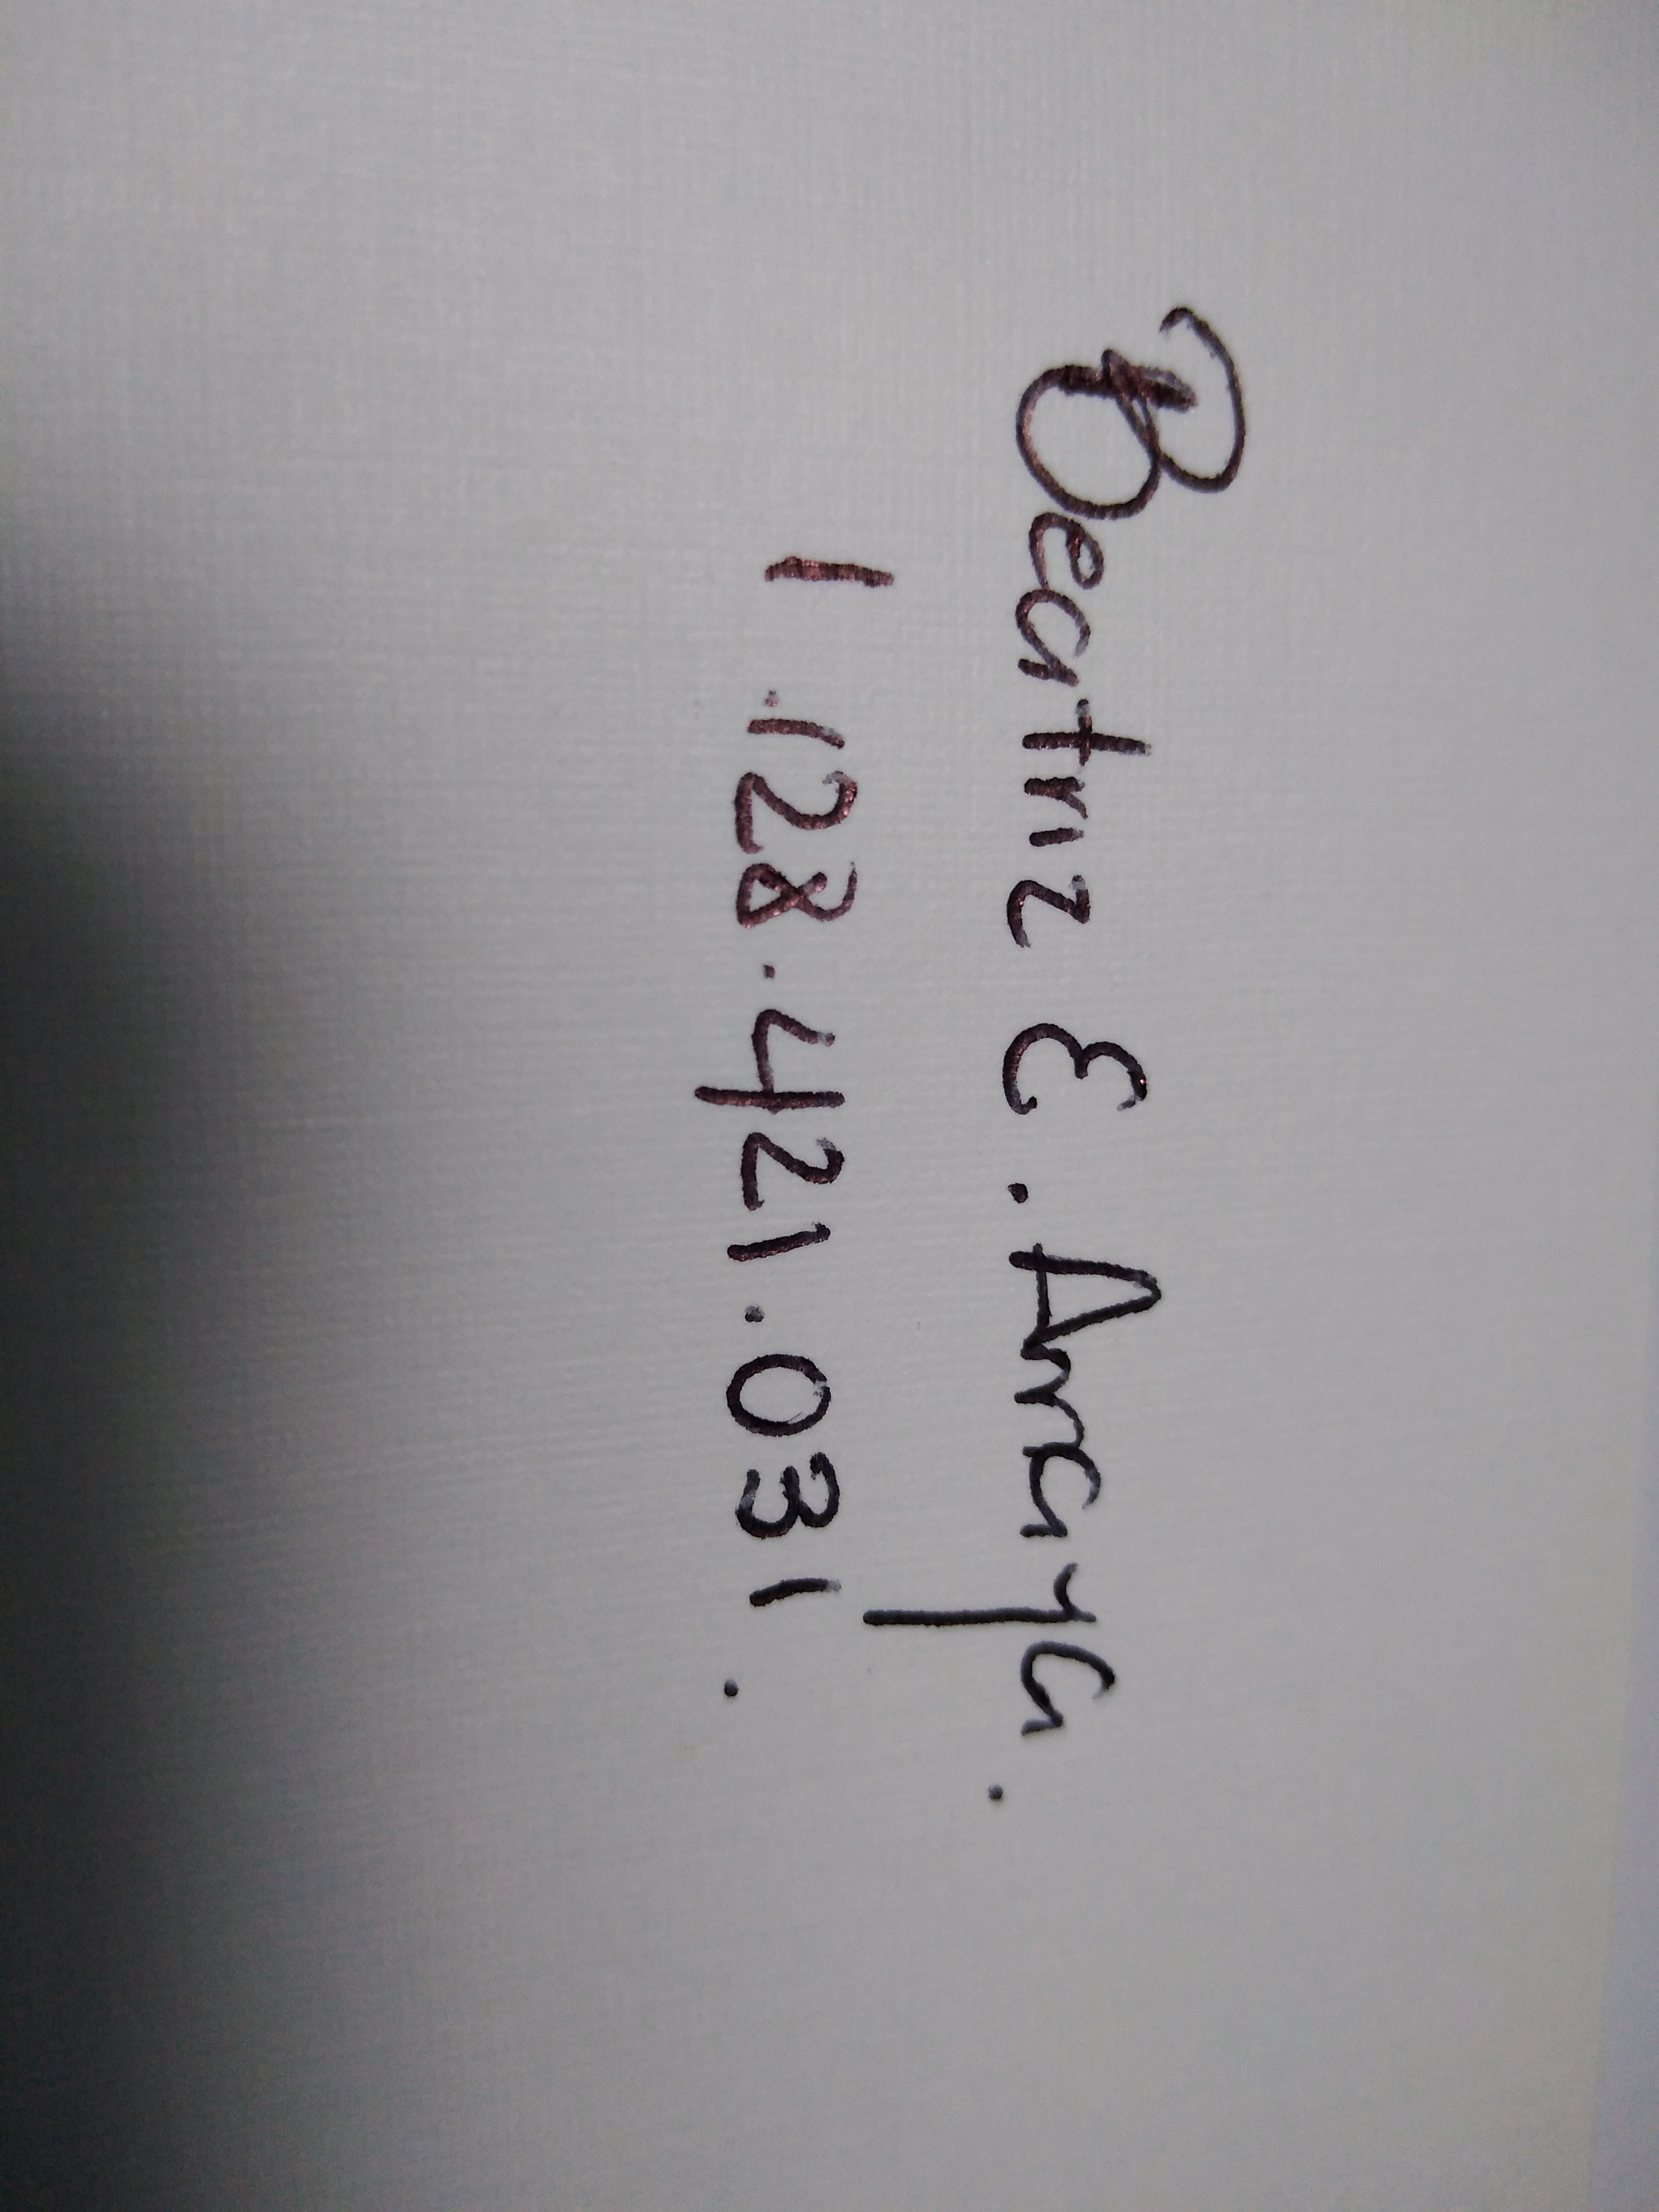 Beatriz E. Arraya.
1.128.421.031.